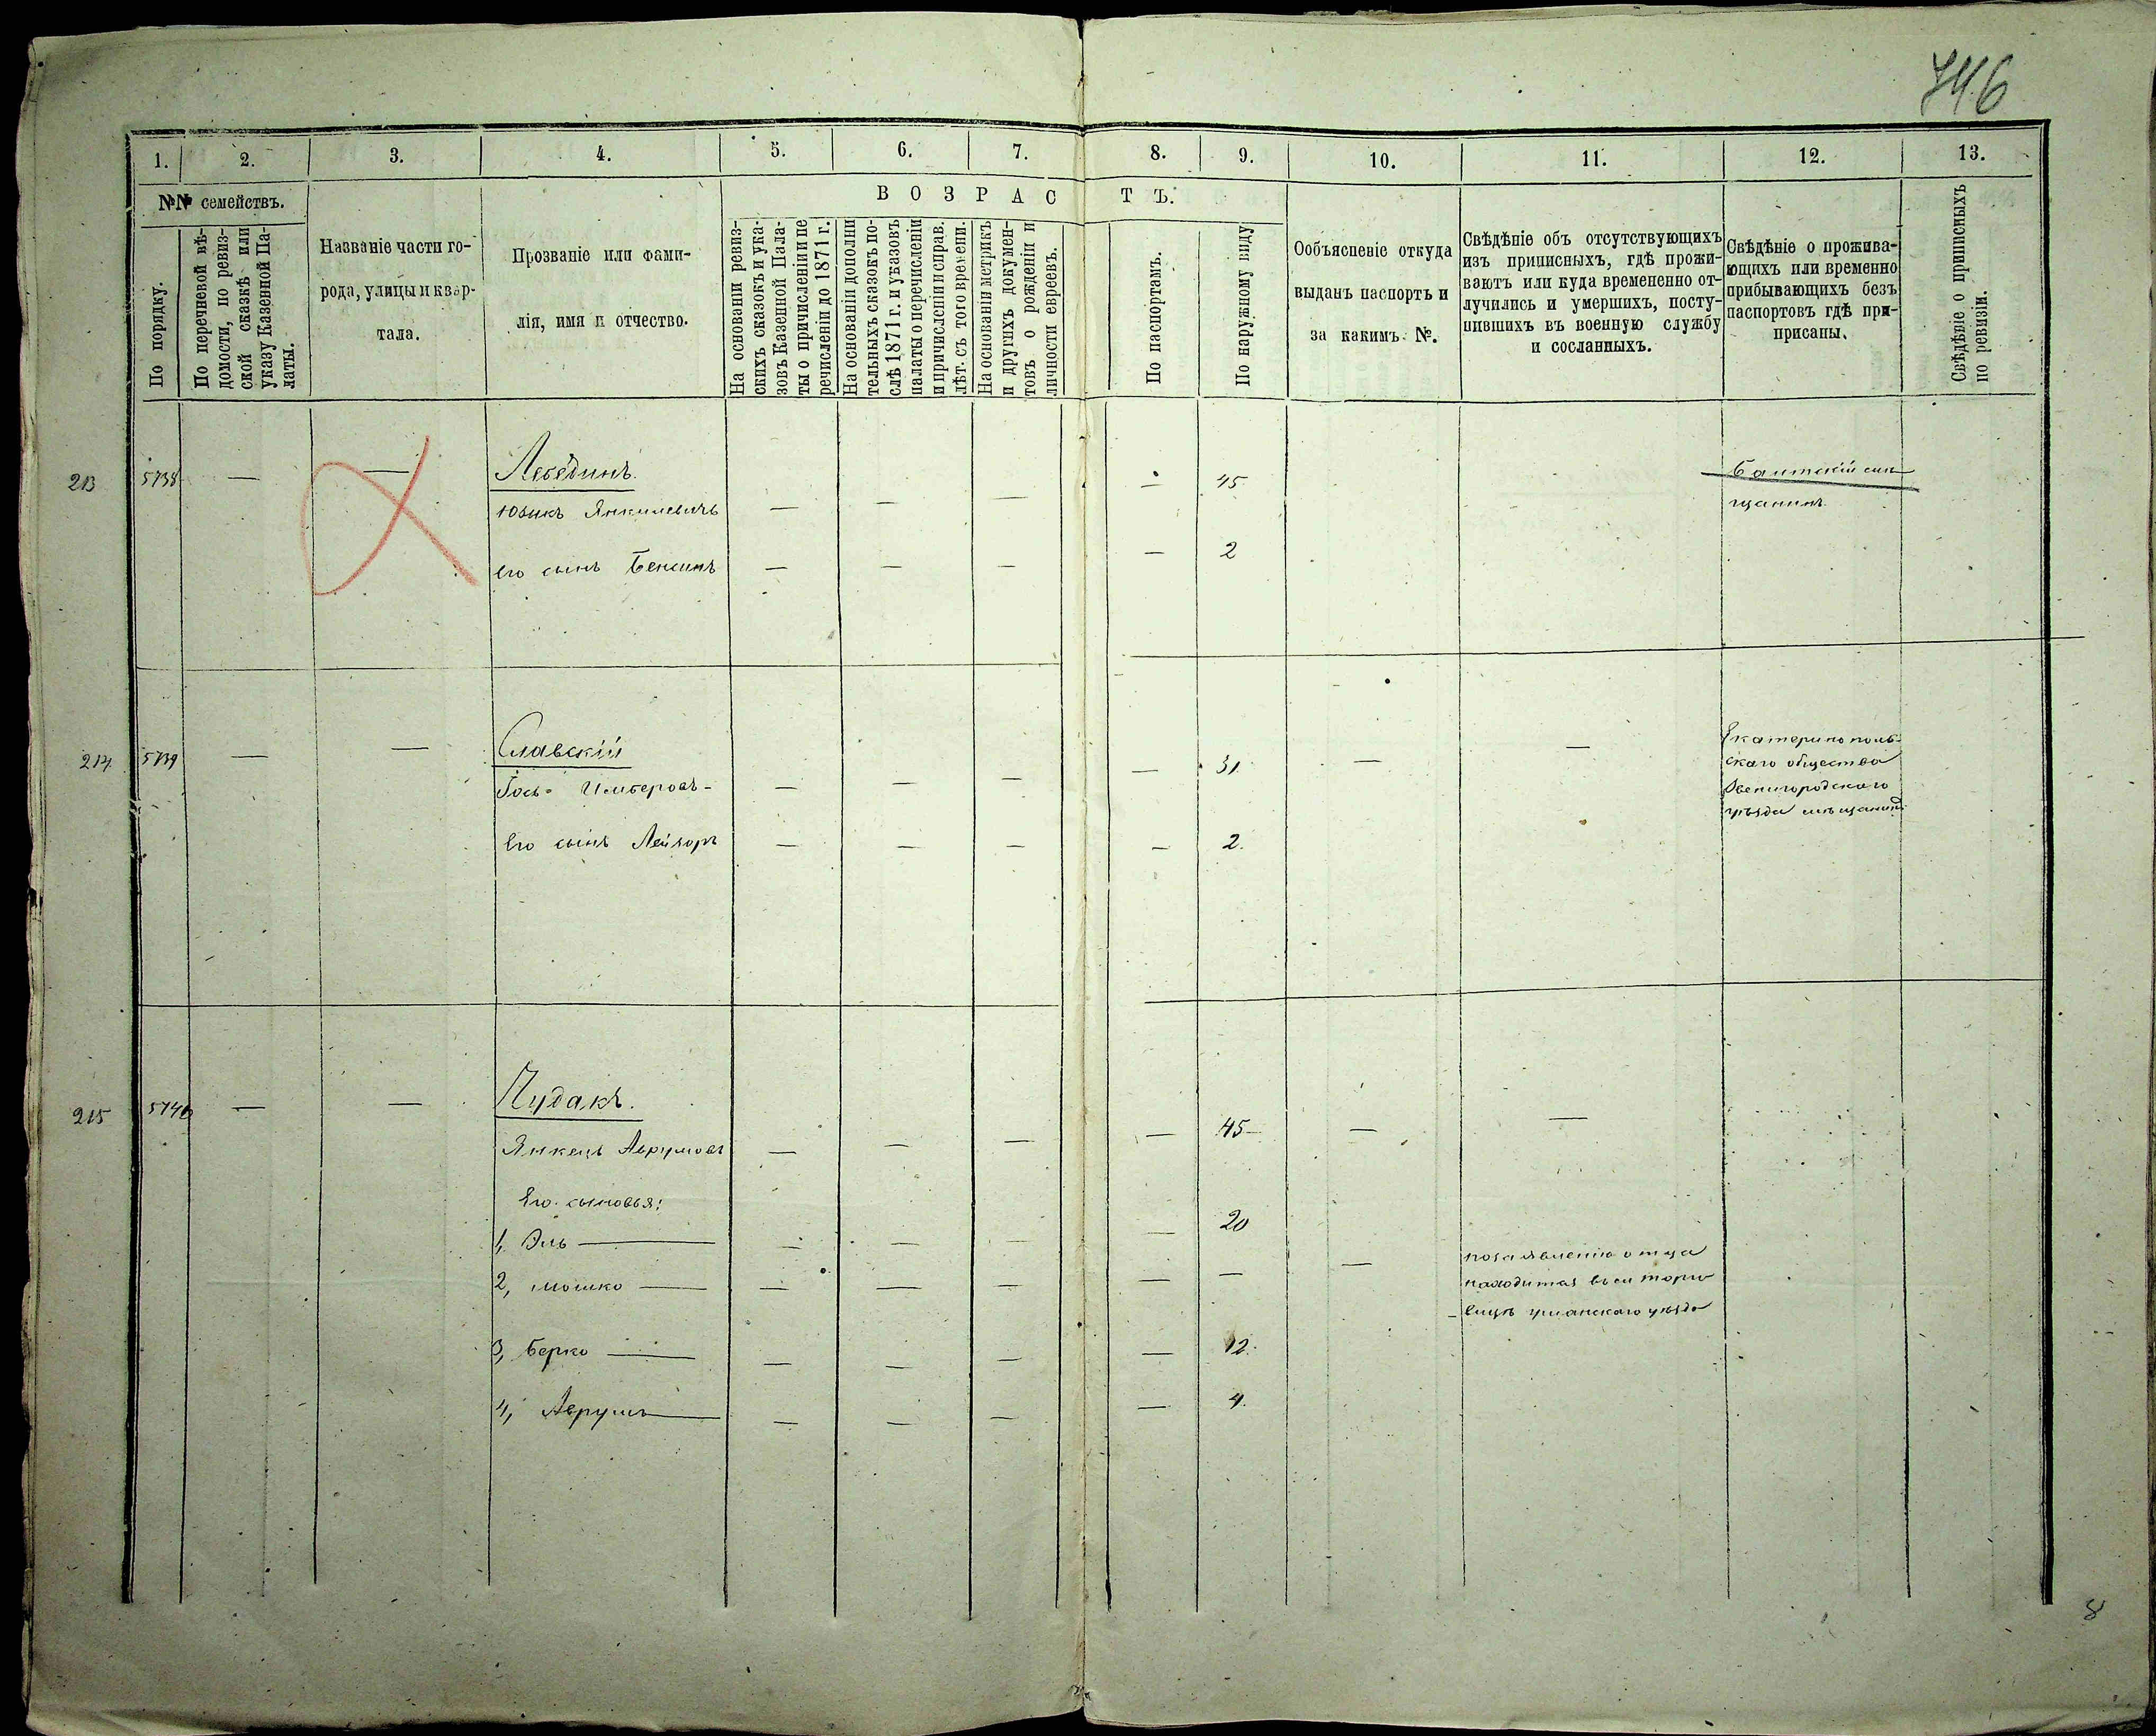 746
1. 2. 3. 4. 5. 6. 7. 8. 9. 10. 11. 12. 13.
№№ семействъ.
В О З Р А С Т Ъ.
По порядку.
По перечневой вѣ-
домости, по ревиз-
ской сказкѣ или
указу Казенной Па-
латы.
Названіе части го-
рода, улицы и квар-
тала.
Прозваніе или фами-
лія, имя и отчество.
На основаніи ревиз-
скихъ сказокъ и ука-
зовъ Казенной Пала-
ты о причисленіи и пе
речисленіи до 1871 г.
На основаніи дополни
тельныхъ сказокъ по-
слѣ 1871 г. и указовъ
палаты о перечисленіи
и причисленіи справ.
лѣт. съ того времени.
На основаніи метрикъ
и другихъ докумен-
товъ о рожденіи и
личности евреевъ.
По паспортамъ.
По наружному виду
Ообъясненіе откуда
выданъ паспортъ и
за какимъ №.
Свѣдѣніе объ отсутствующихъ
изъ приписныхъ, гдѣ прожи-
ваютъ или куда времененно от-
лучились и умершихъ, посту-
пившихъ въ военную службу
и сосланныхъ.
Свѣдѣніе о прожива-
ющихъ или временно
прибывающихъ безъ
паспортовъ гдѣ при-
приписаны.
Свѣдѣніе о приписныхъ
по ревизіи.
213 5738 — — Лебединъ.
Юзикъ Янкилевичъ — — — — 45
Его сынъ Бенсинъ — — — — 2
щанинъ.
214 5739 — — Славскій
Іось — — — — 31 — —
Его сынъ Лейзоръ — — — — 2.
Екатеринополь-
скаго общества
Звенигородскаго
уѣзда мѣщанинъ
215 5740 — — Чудакъ.
Янкель Аврумовъ — — — — 45 — —
Его сыновья:
1, Эль — — — — — 20
2, Мошко — — — — — — —
по заявленію отца
находится въ м Торго
вицѣ уманскаго уѣзда
3, Берко — — — — — 12.
4, Аврумъ — — — — — 4.
8